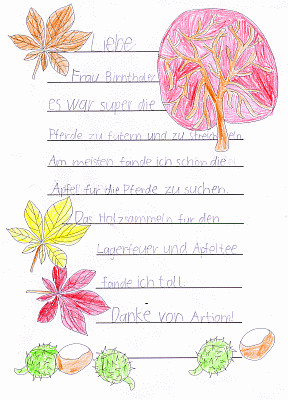 Liebe
Frau Birnthaler
es war super die
Pferde zu futern und zu streicheln
Am meisten fande ich schön die
Äpfel für die Pferde zu suchen.
Das Holzsammeln für den
Lagerfeuer und Apfeltee
fande ich toll.
Danke von Artiom!